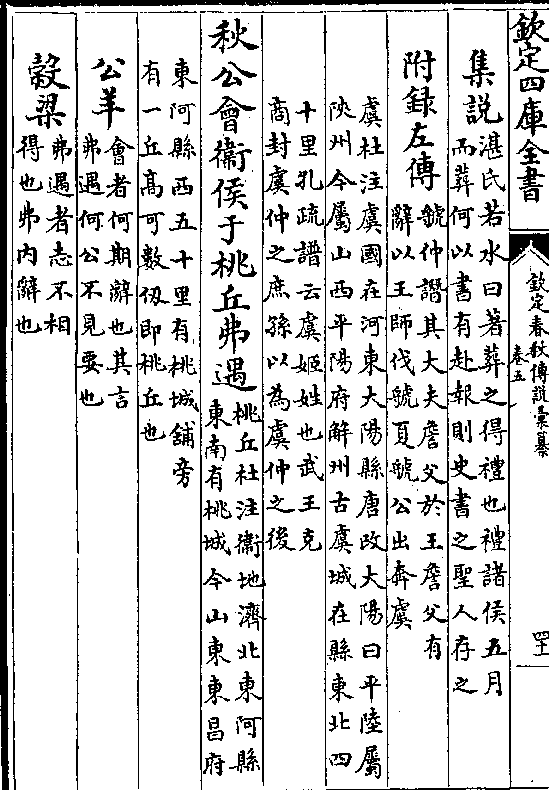 欽定四庫全書
欽定春秋傳說彙纂
卷五
四十
集說
湛氏若水曰著葬之得禮也禮諸侯五月
而葬何以書有赴報則史書之聖人存之
附錄左傳
虢仲譖其大夫詹父於王詹父有
辭以王師伐虢夏虢公出奔虞
虞杜注虞國在河東大陽縣唐改大陽曰平陸屬
陝州今屬山西平陽府解州古虞城在縣東北四
十里孔疏譜云虞姬姓也武王克
商封虞仲之庶孫以為虞仲之後
秋公會衞侯于桃丘弗遇
桃丘杜注衞地濟北東阿縣
東南有桃城今山東東昌府
東阿縣西五十里有桃城鋪旁
有一丘高可數仭即桃丘也
公羊
會者何期辭也其言
弗遇何公不見要也
榖梁
弗遇者志不相
得也弗內辭也